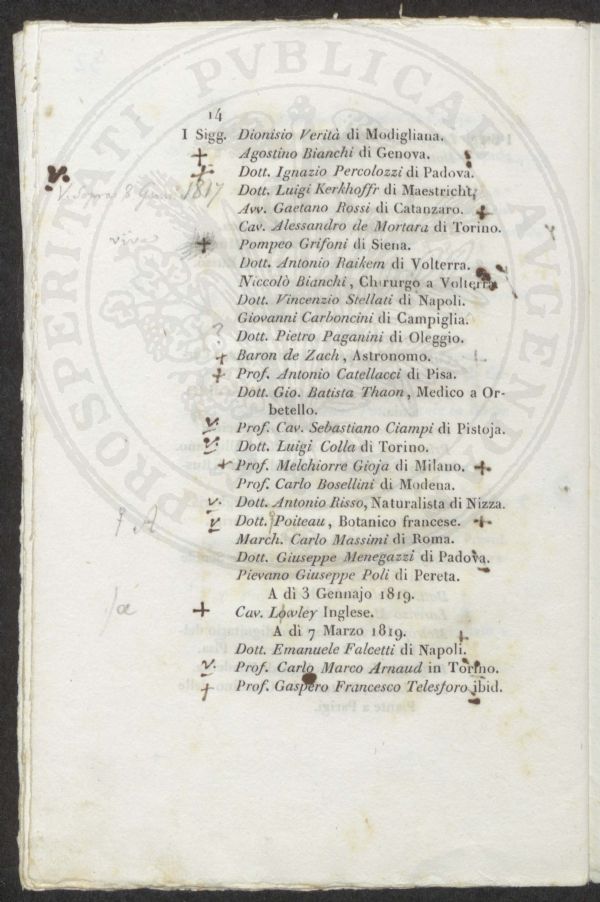 PROSPERITATI PVBLICAE AVGENDAE
14
I Sigg. Dionisio Verità di Modigliana.
+ Agostino Bianchi di Genova.
v. + Dott. Ignazio Percolozzi di Padova.
1817 Dott. Luigi Kerkhoffr di Maestricht,
Avv. Gaetano Rossi di Catanzaro. +
Cav. Alessandro de Mortara di Torino.
vive + Pompeo Grifoni di Siena.
Dott. Antonio Raikem di Volterra.
Niccolò Bianchi, Chirurgo a Volterra
Dott. Vincenzio Stellati di Napoli.
Giovanni Carboncini di Campiglia.
? Dott. Pietro Paganini di Oleggio.
+ Baron de Zach, Astronomo. +
+ Prof. Antonio Catellacci di Pisa.
Dott. Gio. Batista Thaon, Medico a Or-
betello.
v. Prof. Cav. Sebastiano Ciampi di Pistoja.
v. Dott. Luigi Colla di Torino.
+ Prof. Melchiorre Gioja di Milano. +
Prof. Carlo Bosellini di Modena.
v. Dott. Antonio Risso, Naturalista di Nizza.
v Dott. Poiteau, Botanico francese. +
March. Carlo Massimi di Roma.
Dott. Giuseppe Menegazzi di Padova.
Pievano Giuseppe Poli di Pereta.
A dì 3 Gennajo 1819.
+ Cav. Lowley Inglese.
A dì 7 Marzo 1819. +
Dott. Emanuele Falcetti di Napoli.
v. Prof. Carlo Marco Arnaud in Torino.
+ Prof. Gaspero Francesco Telesforo ibid.